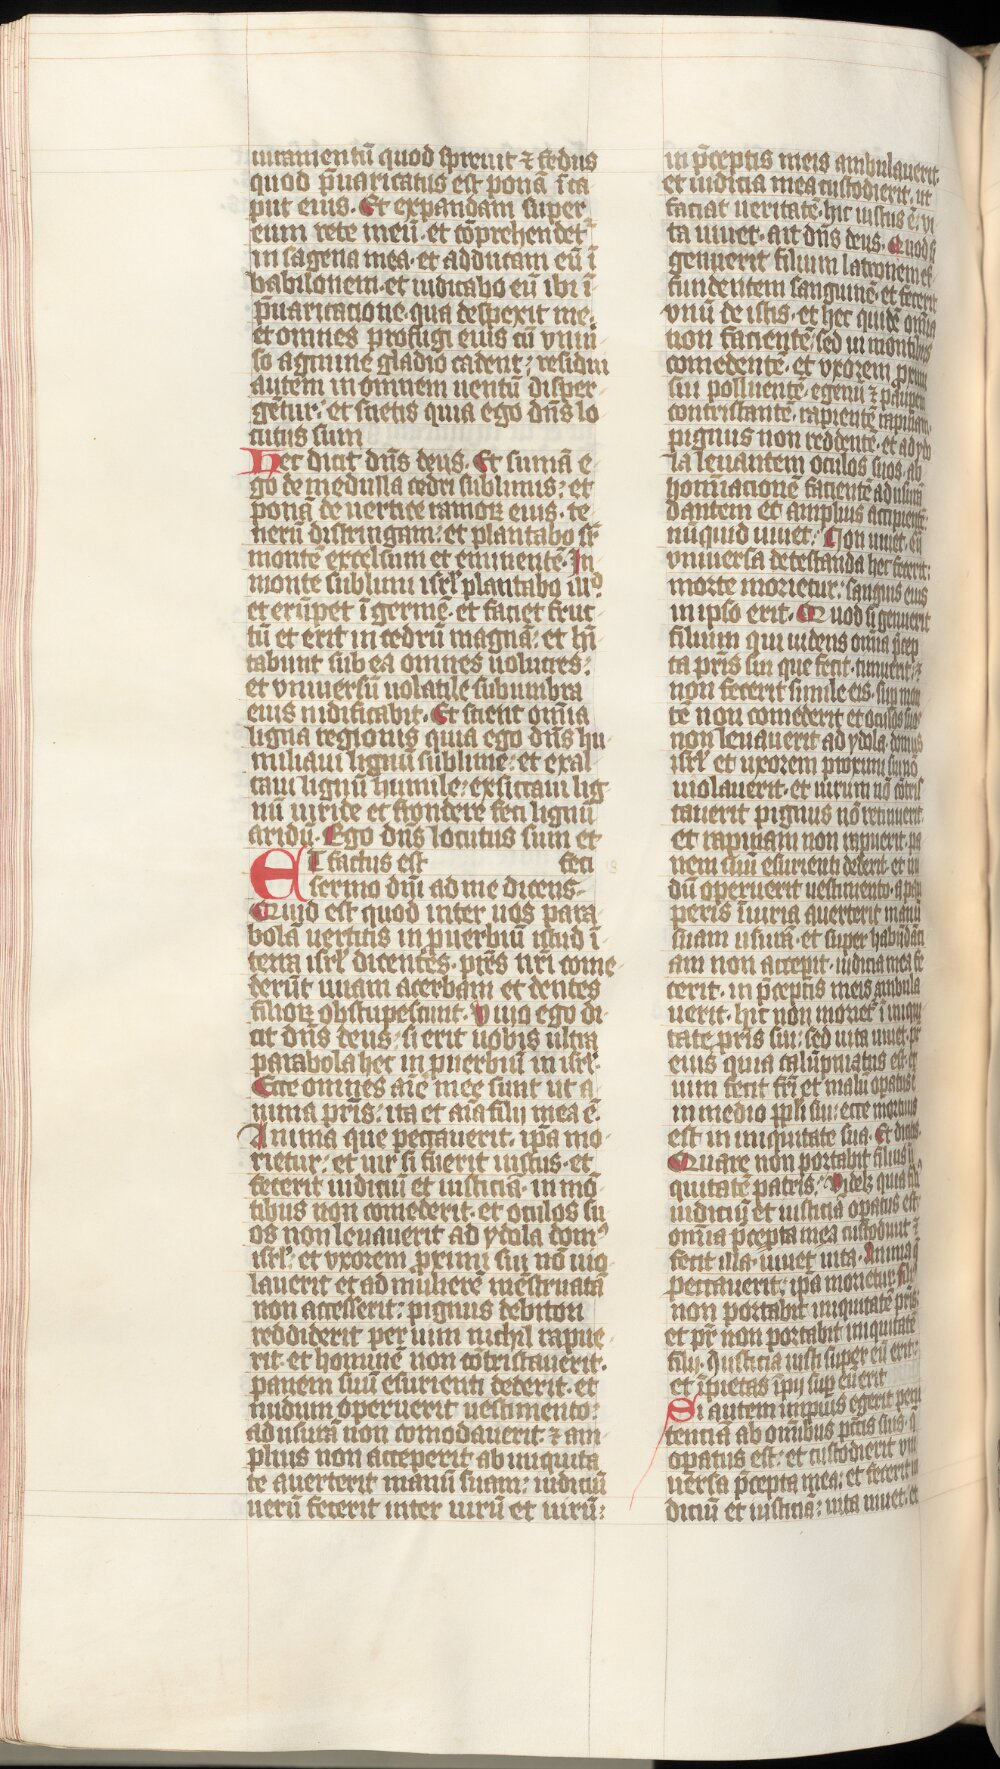 iuramentū quod spreuit ⁊ fedus
quod p̄uaricatus est ponā ī ca
put eius. Et expandam super
eum rete meū. et cōprehendet᷑
in sagena mea. et adducam eū ī
babilonem. et iudicabo eū ibi ī
p̄uaricatione qua despexit me.
et omnes profugi eius cū vniu͛
so agmine gladio cadent; residui
autem in omnem uentū disper
gētur: et scietis quia ego dn̄s lo
cutus sum
Hec dicit dn̄s deus. Et sumā e
go de medulla cedri sublimis: et
ponā de vertice ramoꝝ eius. te
nerū distringam: et plantabo sr̄
montē excelsum et eminentē. In
monte sublimi isrl̓ plantabo illd̓
et erūpet ī germē. et faciet fruc
tū et erit in cedrū magnā: et hī
tabunt sub ea omnes uolucres:
et vniuersū uolatile sub umbra
eius nidificabit. Et scient om̄ia
ligna regionis quia ego dn̄s hu
miliaui lignū sublime: et exal
taui lignū humile: et siccaui lig
nū uiride et frondere feci lignū
aridū. Ego dn̄s locutus sum et
ET factus est feci
sermo dn̄i ad me dicens.
Quid est quod inter uos para
bolā uertitis in puerbiū istud ī
terra isrl̓ dicentes. pr̄es nr̄i come
derūt uuam acerbam et dentes
filioꝝ obstupescunt. Viuo ego di
cit dn̄s deus: si erit uobis ultra
parabola hec in puerbiū in isrl̓.
Ecce omnes aīe mee sunt ut a
nima pr̄is: ita et aīa filij mea ē.
Anima que peccauerit. ip̄a mo
rietur: et uir si fuerit iustus. et
fecerit iudiciū et iusticiā. in mō
tibus non comederit. et oculos su
os non leuauerit ad ydola domꝰ
isrl̓: et vxorem proximi sui nō uio
lauerit et ad mulierē mēstruatā
non accesserit: pignus debitori
reddiderit per uim nichil rapue
rit. et hominē non cōtristauerit.
panem suū esurienti dederit. et
nudum operuerit uestimento:
ad usurā non comodauerit ⁊ am
plius non acceperit ab iniquita
te auerterit manū suam: iudiciū
uerū fecerit inter uirū et uirū:
in p̄ceptis meis ambulauerit.
et iudicia mea custodierit. ut
faciat ueritatē. hic iustus ē. vi
ta uiuet. ait dn̄s deus. Quod si
genuerit filium latronem ef
fundentem sanguinē. et fecerit
vnū de istis. et hec quidē om̄ia
non facientē: sed in montibus
comedentē. et vxorem proximi
sui polluentē. egenū ⁊ paupem
contristantē. rapientē rapinam.
pignus non reddentē. et ad ydo
la leuantem oculos suos. ab
hominacionē facientē ad usurā
dantem et amplius accipientē:
nūquid uiuet. Non uiuet. cū
vniuersa detestanda hec fecerit:
morte morietur: sanguis eius
in ipso erit. Quod si genuerit
filium qui uidens omnia p̄cca
ta pr̄is sui que fecit. timuerit. ⁊
non fecerit simile eis. sup mon
tē non comederit et oculos suos
non leuauerit ad ydola domus
isrl̓ et uxorem proximi sui nō
uiolauerit. et uirum nō cōtris
tauerit pignus nō retinuerit.
et rapinam non rapuerit. pa
nem suū esurienti dederit. et nu
dū operuerit uestimento. a pau
peris īiuria auerterit manū
suam usurā. et super habūdāci
am non accepit. iudicia mea fe
cerit. in p̄ceptis meis ambula
uerit. hic non moriet᷑ ī iniqui
tate pr̄is sui: sed uita uiuet. pr̄
eius quia calūpniatus est. et
uim fecit fr̄i et malū opatus ē
in medio pp̄li sui: ecce mortuus
est in iniquitate sua. Et dicitis.
Quare non portabit filius īi
quitatē patris. Videlꝫ quia filiꝰ
iudiciū et iusticiā opatus est.
om̄ia p̄cepta mea custodiuit ⁊
fecit illa. uiuet uita. Anima q̄
peccauerit: ip̄a morietur. filiꝰ
non portabit iniquitatē pr̄is:
et pr̄ non portabit iniquitatē
filij. Iusticia iusti super eū erit:
et īpietas īpij sup eū erit
Si autem impius egerit peni
tenciā ab om̄ibus pc̄cis suis. q̄
opatus est: et custodierit vni
uersa p̄cepta mea: et fecerit iu
diciū et iusticiā: uita uiuet. et